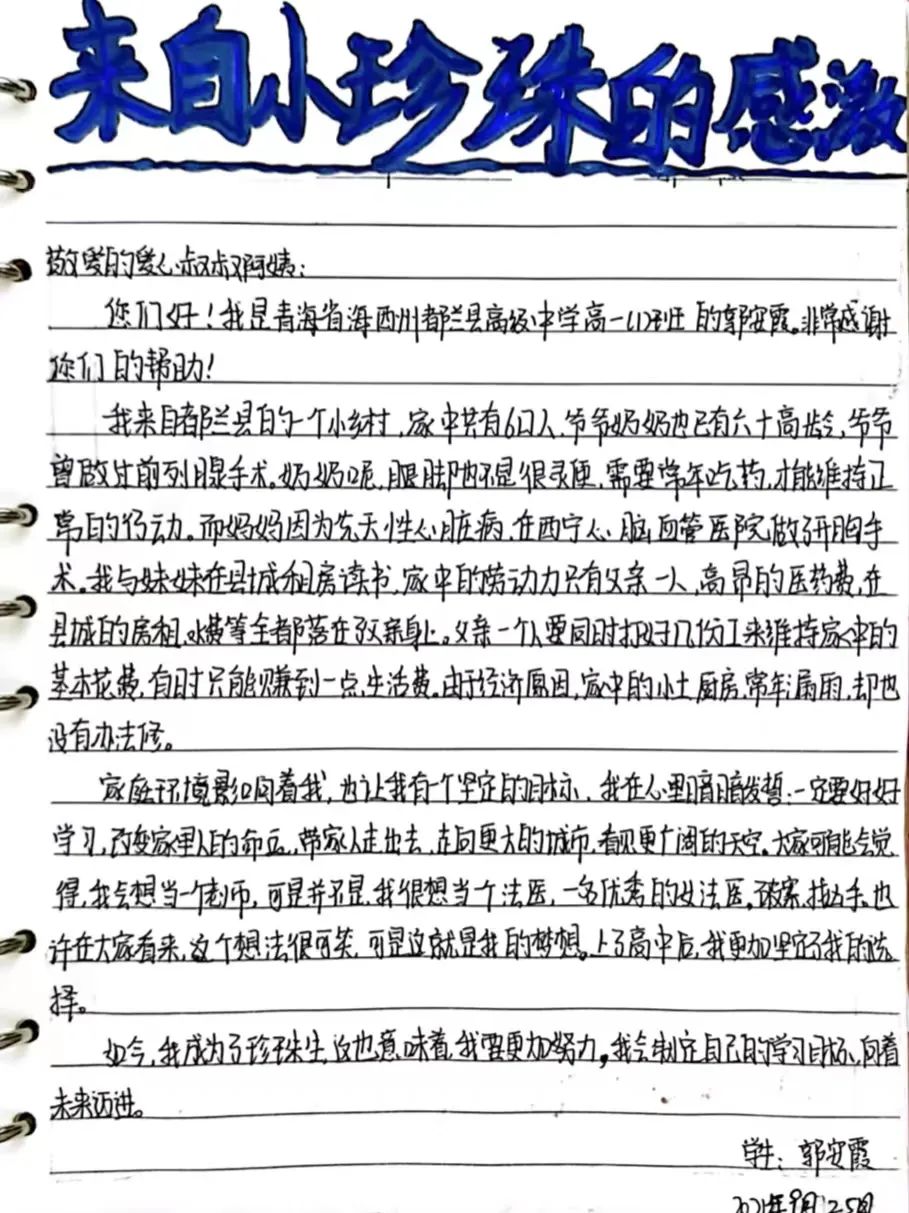 来自小珍珠的感激
敬爱的爱心叔叔阿姨：
您们好！我是青海省海西州都兰县高级中学高一(1)班的郭安霞。非常感谢
您们的帮助！
我来自都兰县的一个小乡村，家中共有6口人，爷爷奶奶也已有六十高龄，爷爷
曾做过前列腺手术。奶奶呢，腿脚也不是很灵便，需要常年吃药，才能维持正
常的行动。而妈妈因为先天性心脏病，在西宁心脑血管医院做了开胸手
术。我与妹妹在县城租房读书，家中的劳动力只有父亲一人，高昂的医药费，在
县城的房租，水费等全都落在了父亲身上。父亲一个人要同时打好几份工来维持家中的
基本花费，有时只能赚到一点生活费。由于经济原因，家中的小土厨房，常年漏雨，却也
没有办法修。
家庭环境影响着我，也让我有一个坚定的目标，我在心里暗暗发誓：一定要好好
学习，改变家里人的命运，带家人走出去，走向更大的城市，看见更广阔的天空。大家可能会觉
得，我会想当一个老师，可是并不是，我很想当个法医，一名优秀的女法医。破案，找凶手，也
许在大家看来，这个想法很可笑，可是这就是我的梦想。上了高中后，我更加坚定了我的选
择。
如今，我成为了珍珠生，这也意味着，我要更加努力，我会制定自己的学习目标，向着
未来迈进。
学生：郭安霞
2021年9月25日